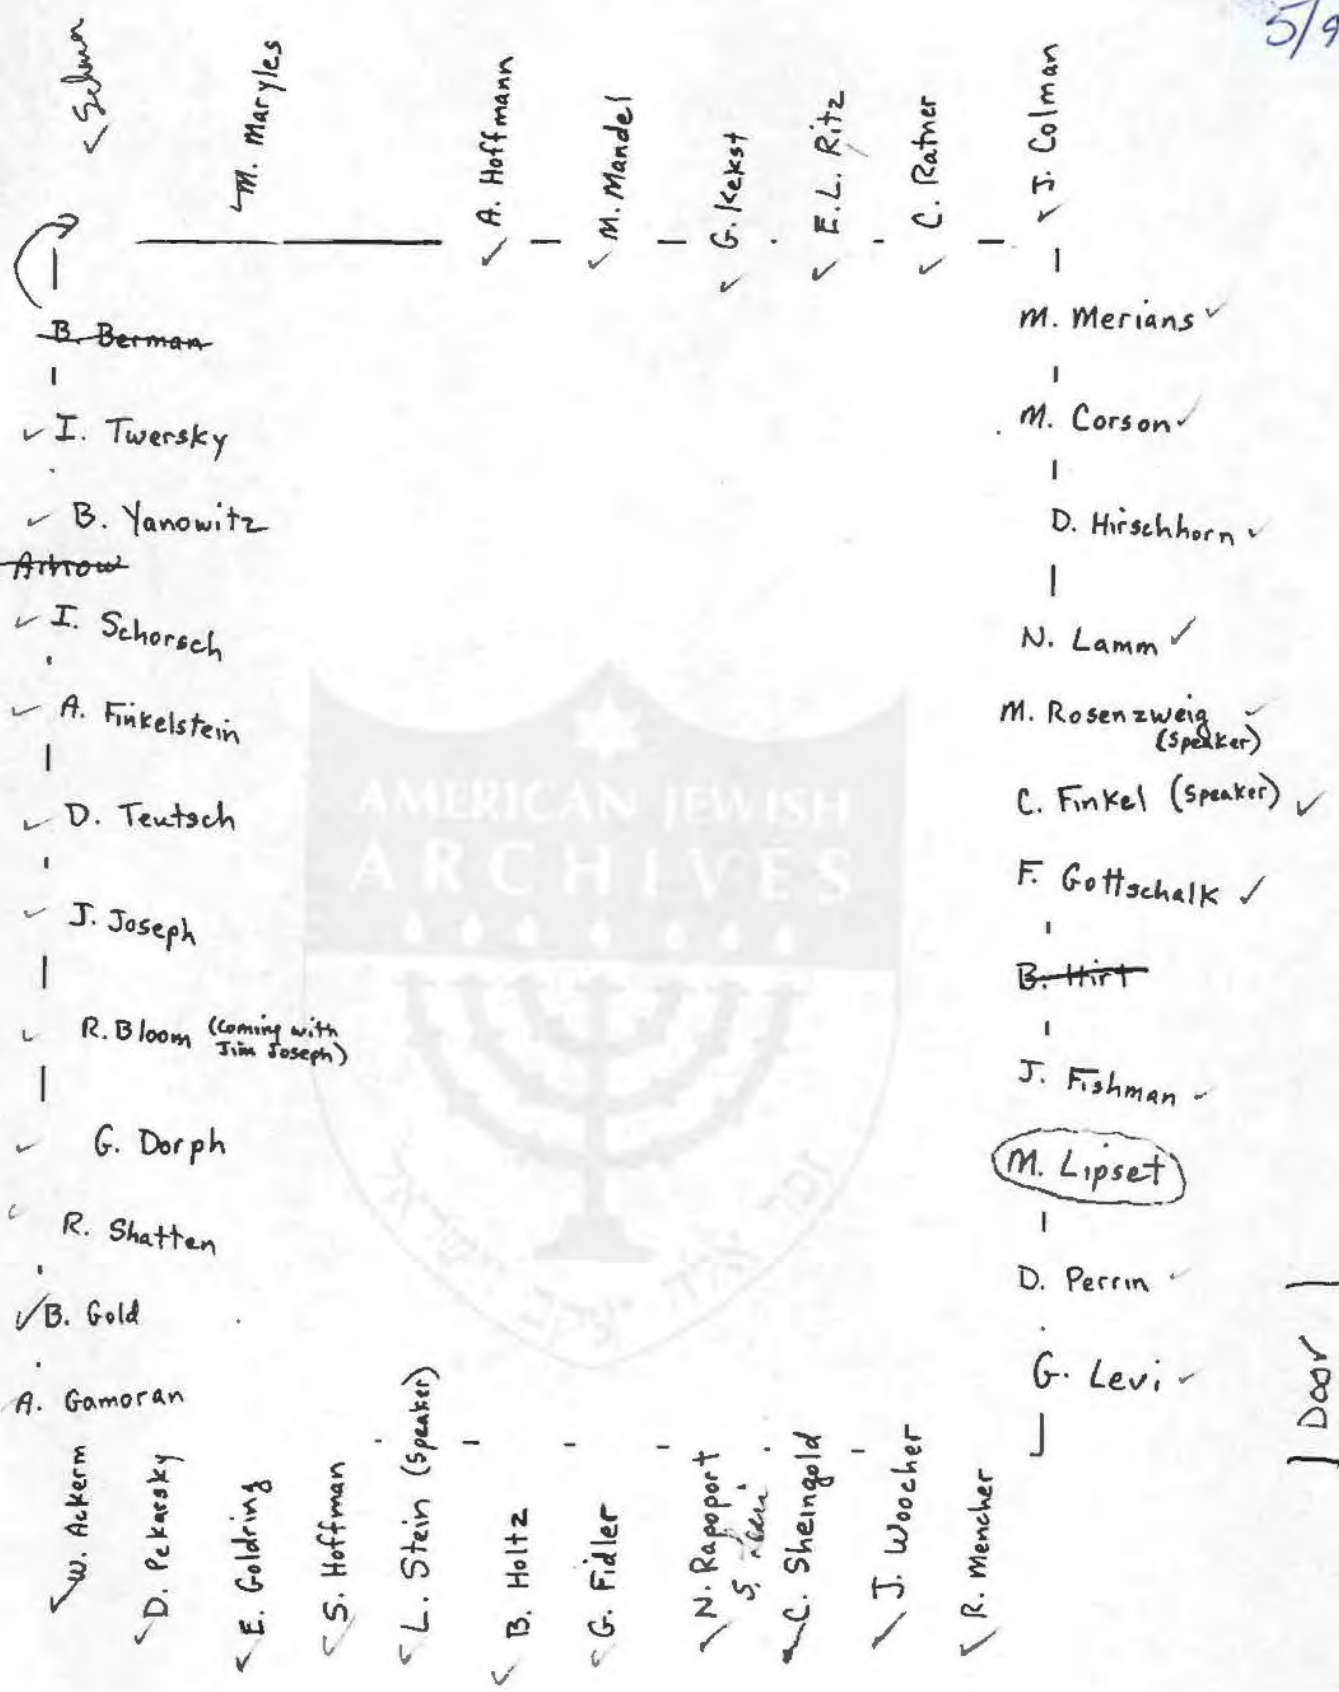 5/9
M. Maryles
A. Hoffmann
M. Mandel
G. Kekst
E.L. Ritz
C. Ratner
J. Colman
B. Berman
I. Twersky
B. Yanowitz
I. Schorsch
A. Finkelstein
D. Teutsch
J. Joseph
R. Bloom (Coming with
Jim Joseph)
G. Dorph
R. Shatten
B. Gold
A. Gamoran
M. Merians
M. Corson
D. Hirschhorn
N. Lamm
M. Rosenzweig
(Speaker)
C. Finkel (Speaker)
F. Gottschalk
B. Hirt
J. Fishman
M. Lipset
D. Perrin
G. Levi
Door
W. Ackerm
D. Pekarsky
E. Goldring
S. Hoffman
L. Stein (Speaker)
B. Holtz
G. Fidler
N. Rapoport
S.
C. Sheingold
J. Woocher
R. Mencher
AMERICAN JEWISH
ARCHIVES
זכר אלה יעקב וישראל